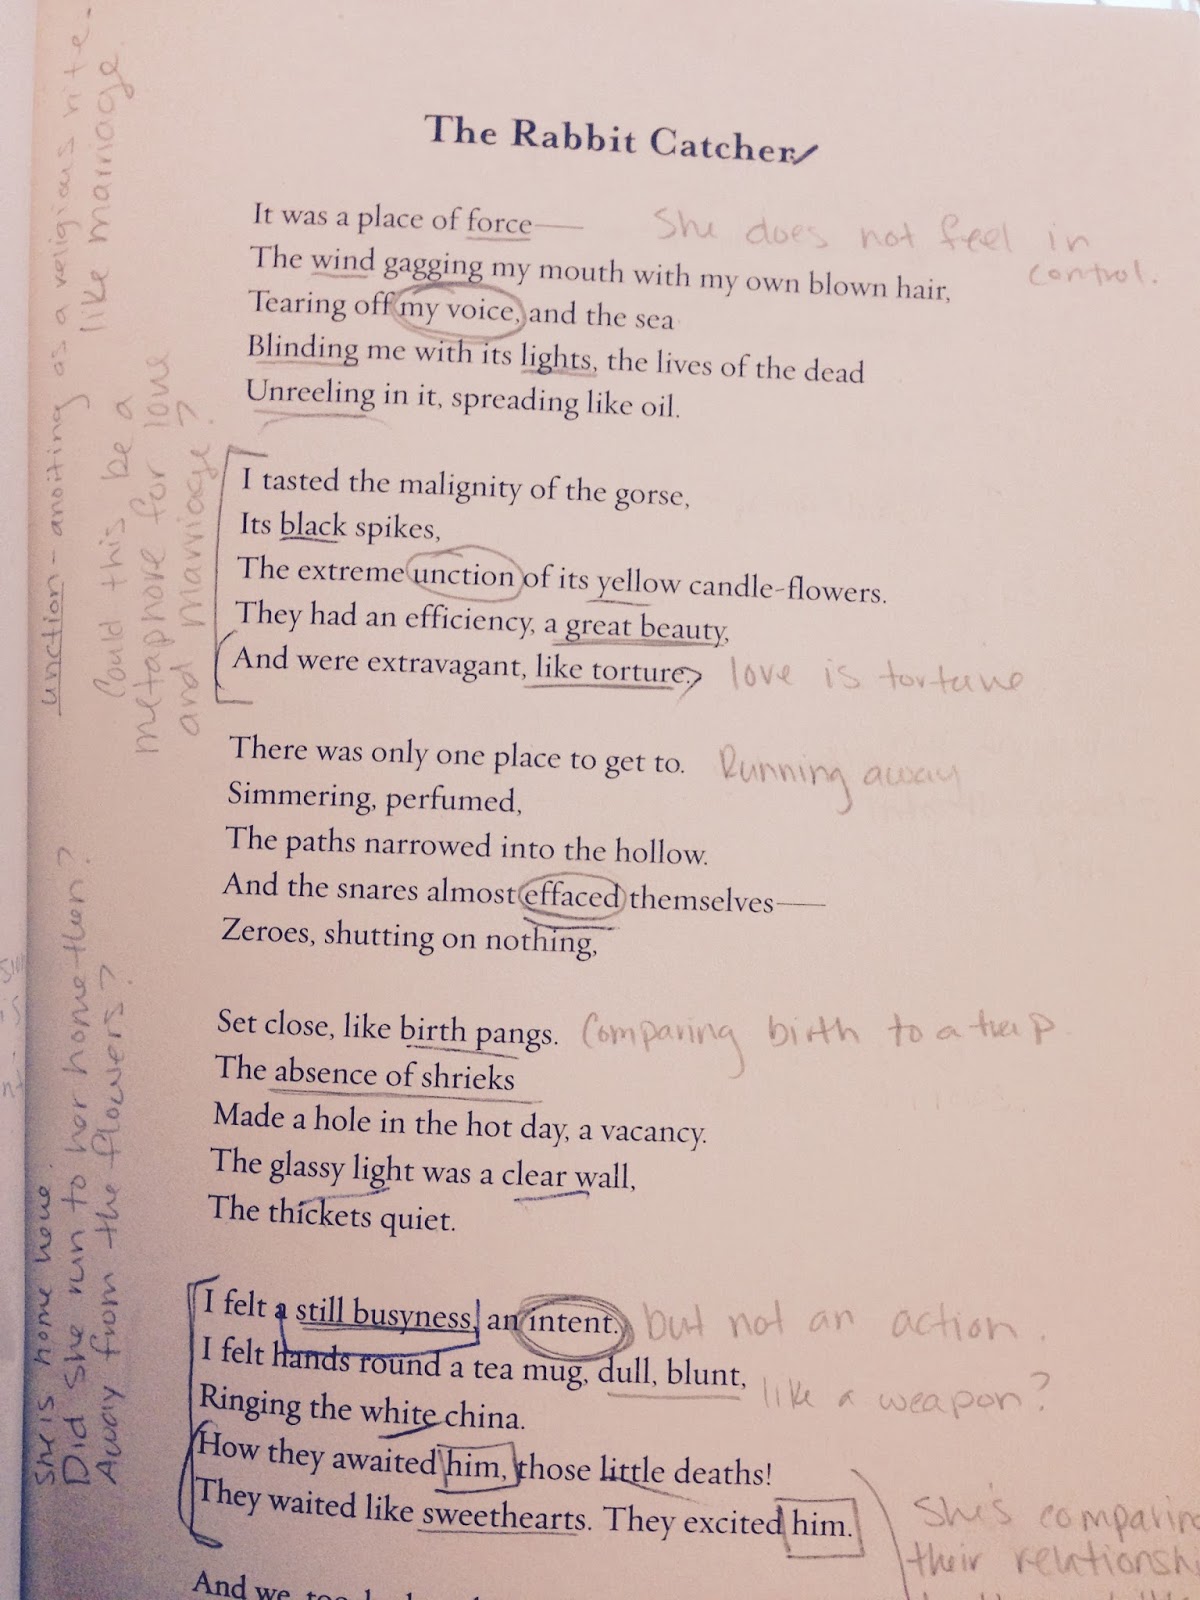 The Rabbit Catcher
It was a place of force——
She does not feel in
control.
The wind gagging my mouth with my own blown hair,
Tearing off my voice, and the sea
Blinding me with its lights, the lives of the dead
Unreeling in it, spreading like oil.
I tasted the malignity of the gorse,
Its black spikes,
The extreme unction of its yellow candle-flowers.
They had an efficiency, a great beauty,
And were extravagant, like torture.
love is torture
There was only one place to get to.
Running away
Simmering, perfumed,
The paths narrowed into the hollow.
And the snares almost effaced themselves——
Zeroes, shutting on nothing,
Set close, like birth pangs.
Comparing birth to a trap
The absence of shrieks
Made a hole in the hot day, a vacancy.
The glassy light was a clear wall,
The thickets quiet.
I felt a still busyness, an intent.
but not an action.
I felt hands round a tea mug, dull, blunt,
like a weapon?
Ringing the white china.
How they awaited him, those little deaths!
They waited like sweethearts. They excited him.
She's comparing
their relationshi
And we, too
unction - anoiting as a religious rite -
like marriage.
Could this be a
metaphore for love
and marriage?
She is home now.
Did she run to her home then?
Away from the flowers?